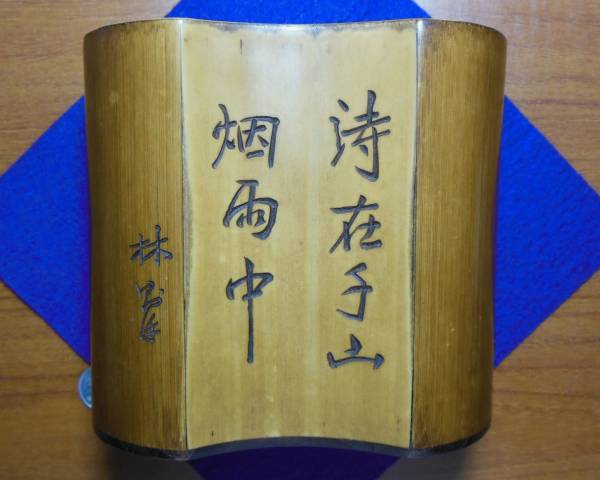 诗在千山
烟雨中
林